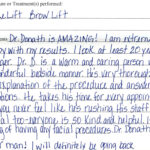 re or Treatment(s) performed:
eLift Brow Lift
Dr. Donath is AMAZING! I am
y with my results. I look at least 20 yea
ger. Dr. D. is a warm and caring person w
nderful bedside manner. His very thorough
explanation of the procedure and answer
tions. He takes his time for every appoin
you never feel like he's rushing. His staff
ful too - everyone is so kind and helpful. I
g of having any facial procedures Dr. Donath
r man! I will definitely be going back